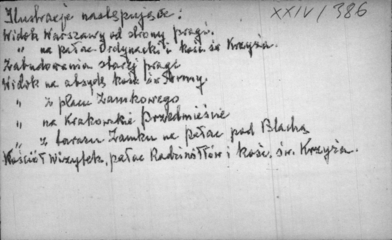 Ilustracje następujące: XXIV/386
Widok Warszawy od strony Pragi.
" na pałac Ordynacki i kośc. św Krzyża.
Zabudowania starej Pragi
Widok na absydę kośc. św Anny.
" z placu Zamkowego
" na Krakowskie Przedmieście
" z tarasu Zamku na pałac pod Blachą
Kościół Wizytek, pałac Radziwiłłów i kośc. św. Krzyża.